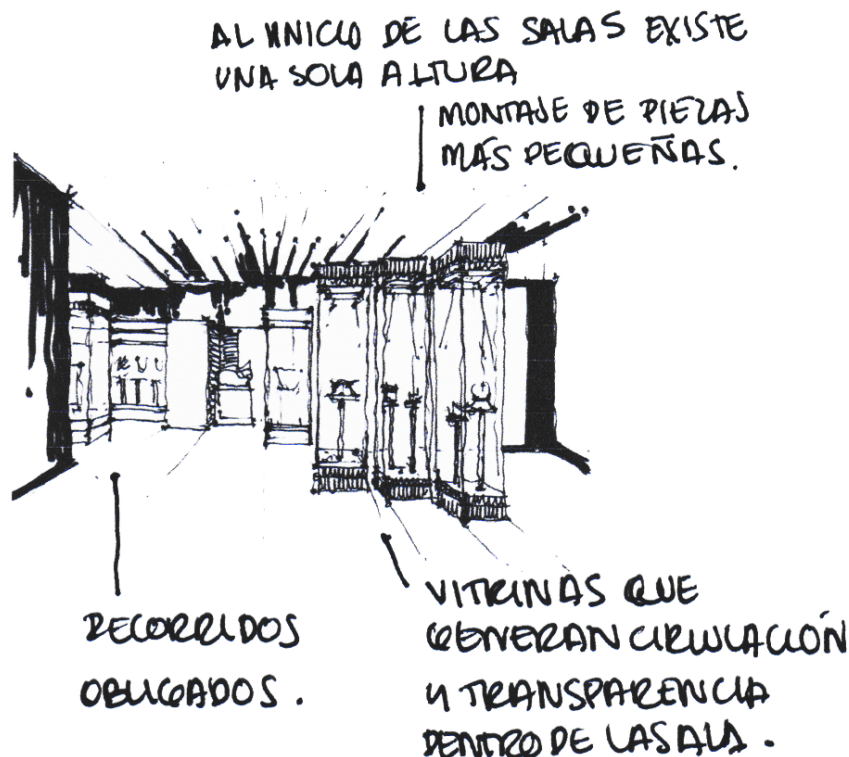 AL INICIO DE LAS SALAS EXISTE
UNA SOLA ALTURA
MONTAJE DE PIEZAS
MÁS PEQUEÑAS.
RECORRIDOS
OBLIGADOS.
VITRINAS QUE
GENERAN CIRCULACIÓN
Y TRANSPARENCIA
DENTRO DE LA SALA.